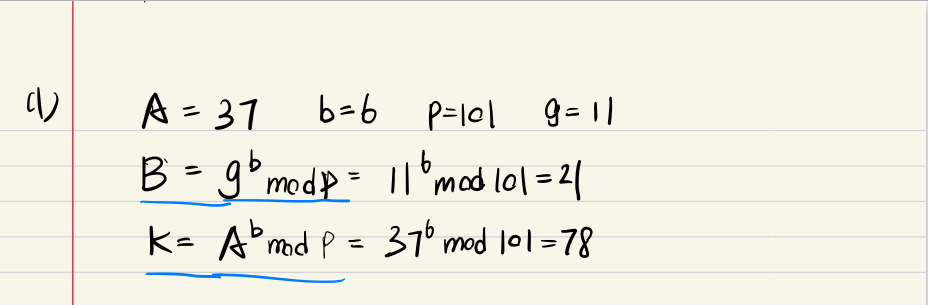 (1) A = 37 b=6 p=101 g=11
B = g^b mod p = 11^6 mod 101 = 21
K = A^b mod p = 37^6 mod 101 = 78